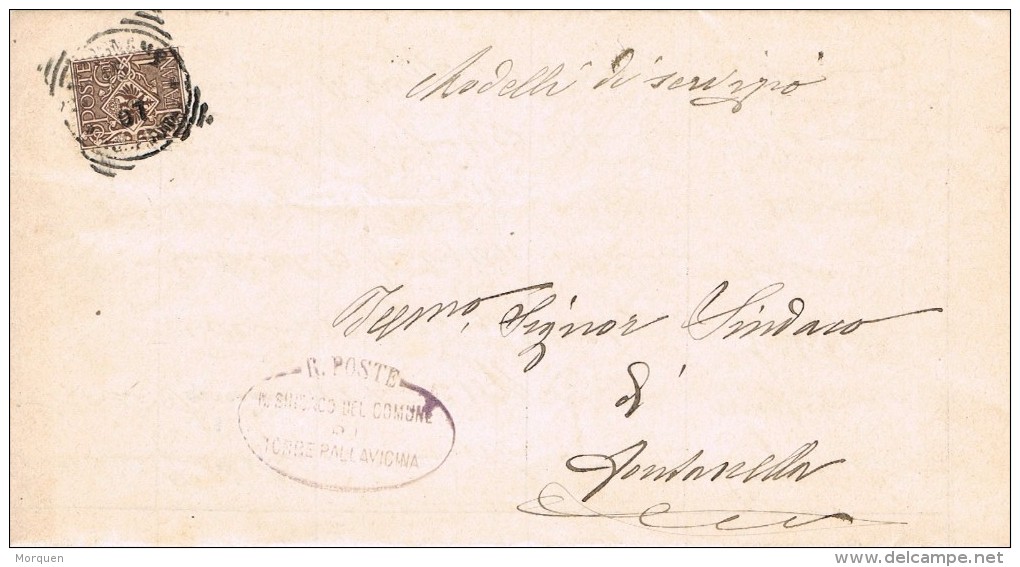 POSTE
97
Modelli di servizio
Signor Sindaco
di
Fontanella
R. POSTE
IL SINDACO DEL COMUNE
DI
TORRE PALLAVICINA
Morquen
delcampe.net